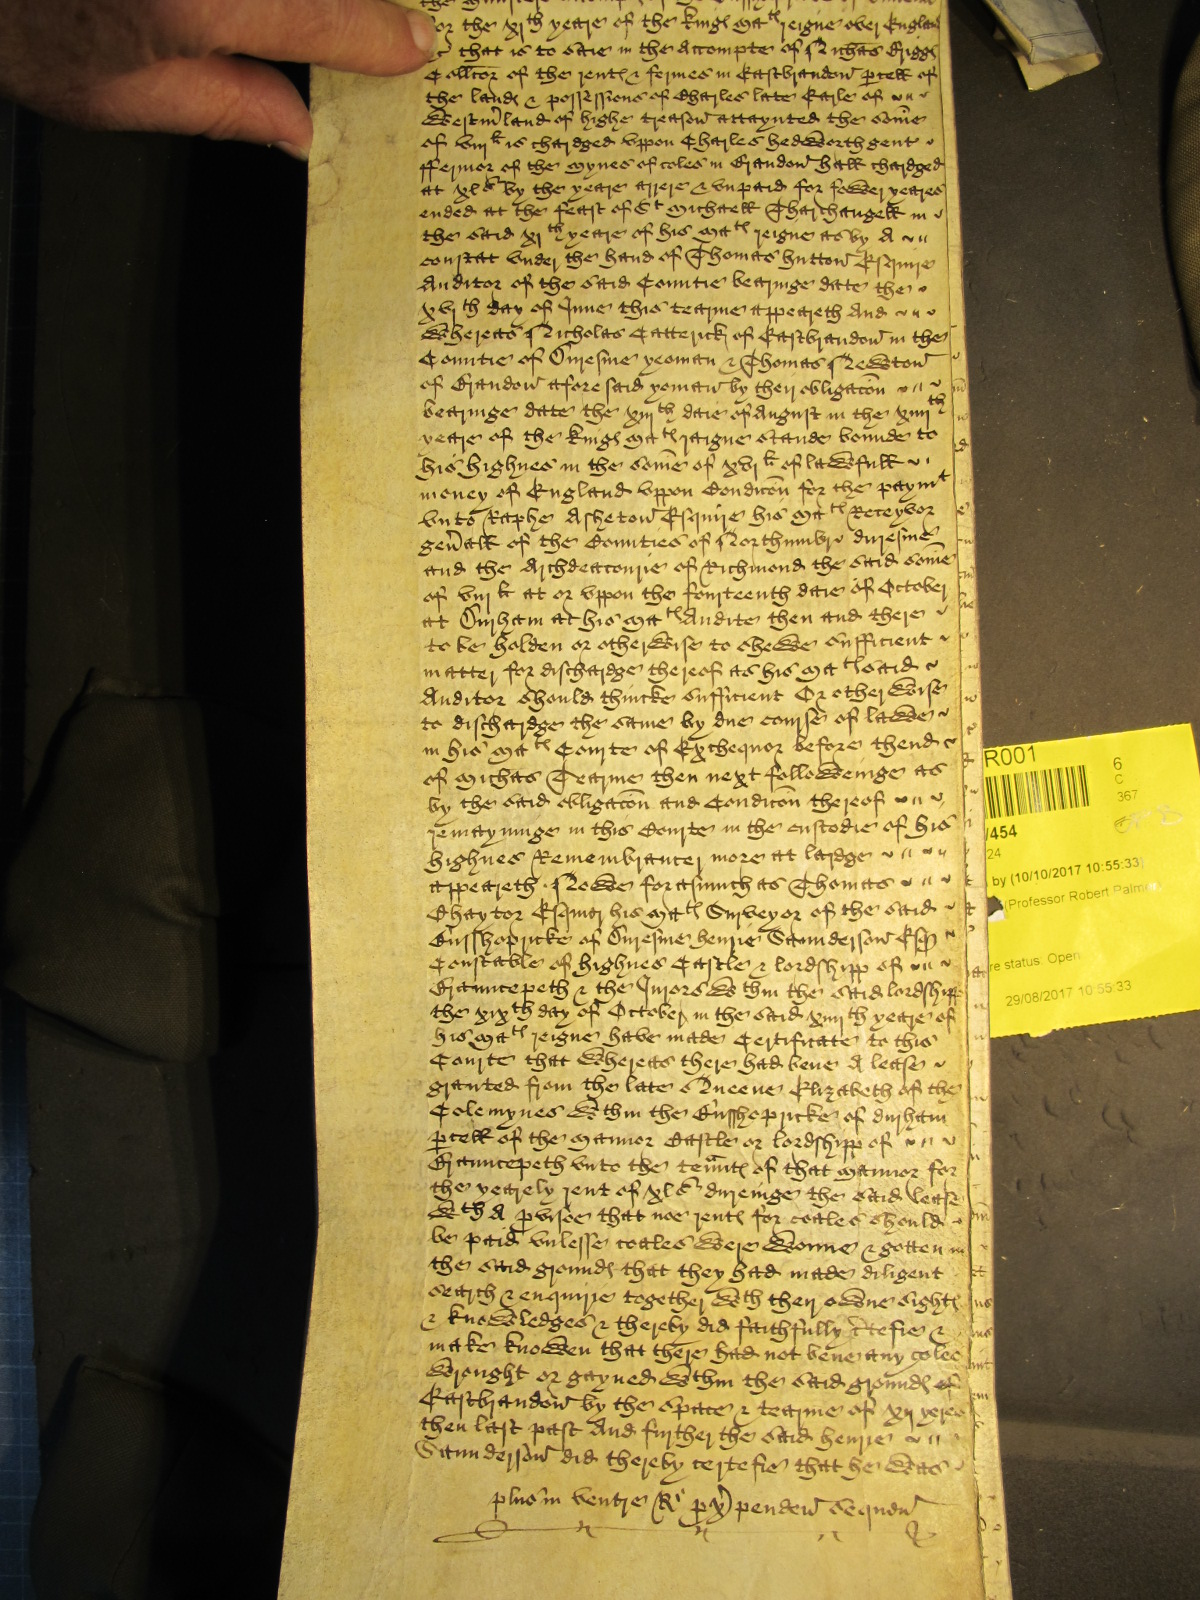 for the xjth yeare of the kings Matls reigne over England
that is to saie in the Accompte of Nichas Briggs
Collcor of the rents & fermes in Eastbrandon pcell of
the lands & possessions of Charles late Earle of
Westmland of highe treason attaynted the some
of viijli is chardged vppon Charles hedworth gent
ffermor of the mynes of coles in Brandon hall chardged
at xls by the yeare arrere & vnpaid for fower yeares
ended at the feast of St Michaell Tharchangell in
the said xjth yeare of his Matls reigne as by A
constat vnder the hand of Thomas hutton Esquire
Auditor of the said Countie bearinge date the
xvjth day of June this tearme appeareth And
Whereas Nicholas Catterick of Eastbrandon in the
Countie of Duresme yeoman & Thomas Newton
of Brandon aforesaid yoman by their obligacon
bearinge date the xiijth daie of August in the xiiijth
yeare of the kings Matls raigne stande bounde to
his highnes in the some of xvjli of lawfull
money of England vppon Condicon for the paymt
vnto Raphe Asheton Esquire his Matls Receyvor
genall of the Counties of Northumbr duresme
and the Archdeaconrie of Richmond the said some
of viijli at or vppon the fourteenth daie of October
at Durham at his Matls Audite then and there
to be holden or otherwise to shewe sufficient
matter for dischardge thereof as his Matls said
Auditor should thincke sufficient Or otherwise
to dischardge the same by due course of lawe
in his Matls Courte of Exchequor before thend
of Michas Tearme then next followeinge as
by the said obligacon and Condicon thereof
remayninge in this Courte in the custodie of his
highnes Remembrancer more at lardge
appeareth Nowe forasmuch as Thomas
Chaytor Esquior his Matls Surveyor of the said
Busshopricke of Duresme henrie Saunderson Esq
Constable of highnes Castle & lordshipp of
Brauncepeth & the Jurors wthin the said lordshipp
the xixth day of October in the said xiiijth yeare of
his Matls reigne have made Certificate to this
Courte that whereas there had bene A lease
graunted from the late Queene Elizabeth of the
Colemynes wthin the Busshopricke of durham
pcell of the mannor Castle or lordshipp of
Brauncepeth vnto the tennts of that mannor for
the yearely rent of xls dureinge the said lease
wth A pvisoe that noe rents for coales should
be paid vnlesse coales were wonne & gotten in
the said grounds that they had made diligent
search & enquirie together wth their owne sights
& knowledges & thereby did faithfully ctefie &
make knowen that there had not bene any coles
wrought or gayned wthin the said grounds of
Eastbrandon by the space & tearme of xij yeres
then last past And further the said henrie
Saunderson did thereby certefie that he was
plus in ventre Ri px penden sequen
R001
6
C
367
/454
24
by (10/10/2017 10:55:33)
(Professor Robert Palmer
re status: Open
29/08/2017 10:55:33